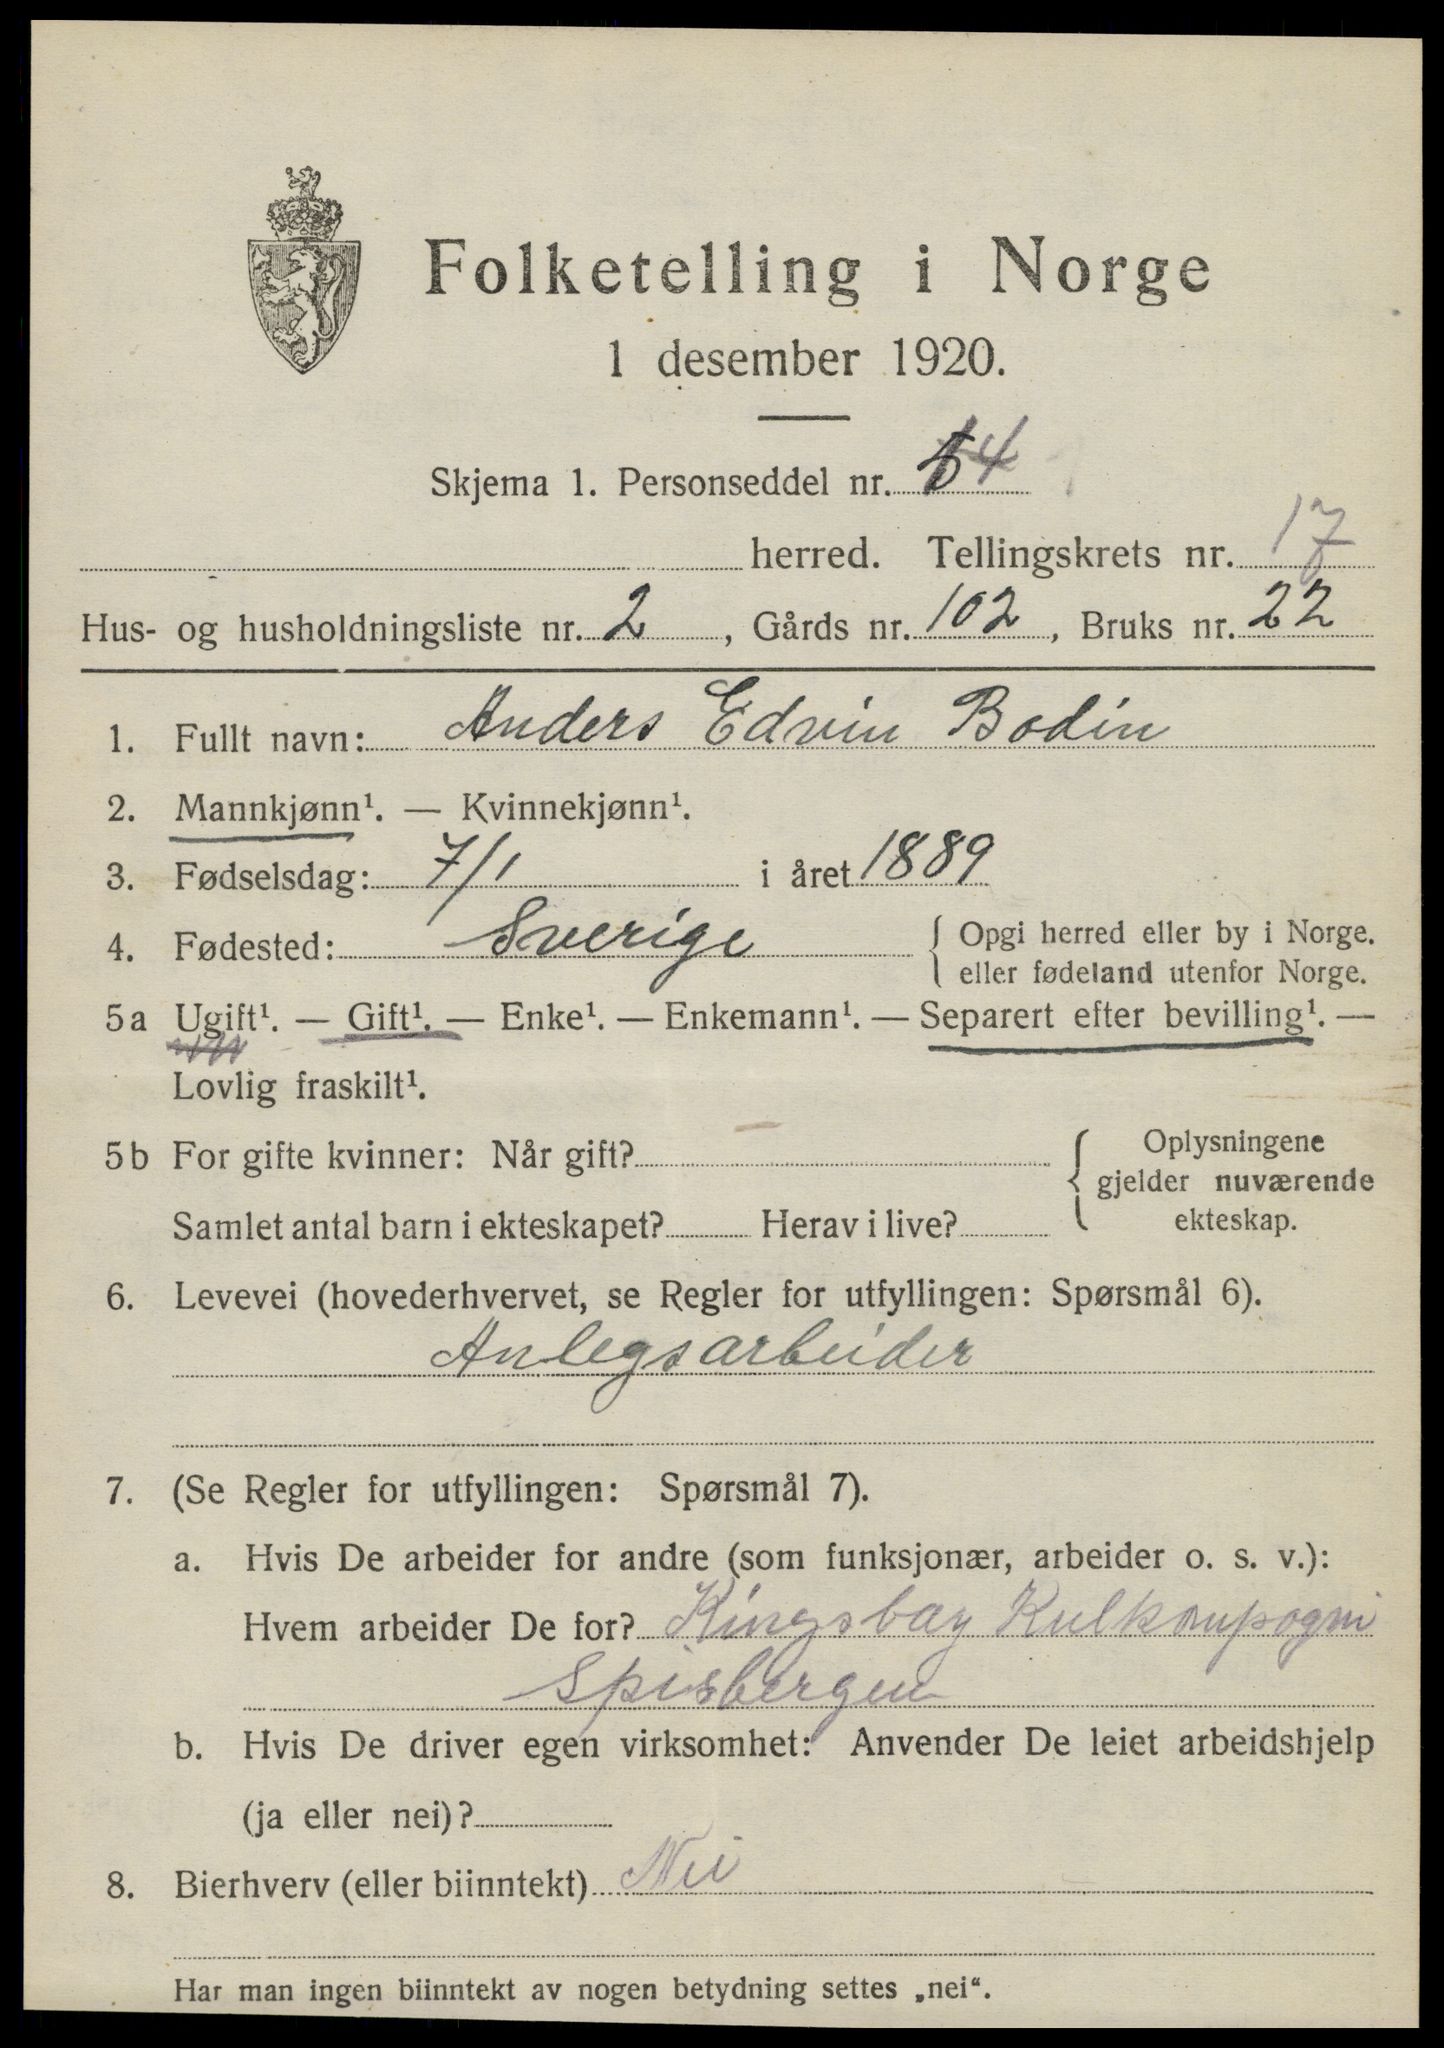 Folketelling i Norge
1 desember 1920.
Skjema 1. Personseddel nr. 4
herred. Tellingskrets nr. 17
Hus- og husholdningsliste nr. 2, Gårds nr. 102, Bruks nr. 22
1. Fullt navn: Anders Edvin Bodin
2. Mannkjønn¹. — Kvinnekjønn¹.
3. Fødselsdag: 7/1 i året 1889
4. Fødested: Sverige { Opgi herred eller by i Norge.
eller fødeland utenfor Norge.
5a Ugift¹. — Gift¹. — Enke¹. — Enkemann¹. — Separert efter bevilling¹. —
Lovlig fraskilt¹.
5b For gifte kvinner: Når gift? { Oplysningene
gjelder nuværende
Samlet antal barn i ekteskapet? Herav i live? ekteskap.
6. Levevei (hovederhvervet, se Regler for utfyllingen: Spørsmål 6).
Anlegsarbeider
7. (Se Regler for utfyllingen: Spørsmål 7).
a. Hvis De arbeider for andre (som funksjonær, arbeider o. s. v.):
Hvem arbeider De for? Kingsbay Kulkompogni
Spisbergen
b. Hvis De driver egen virksomhet: Anvender De leiet arbeidshjelp
(ja eller nei)?
8. Bierhverv (eller biinntekt) Nei
Har man ingen biinntekt av nogen betydning settes „nei“.